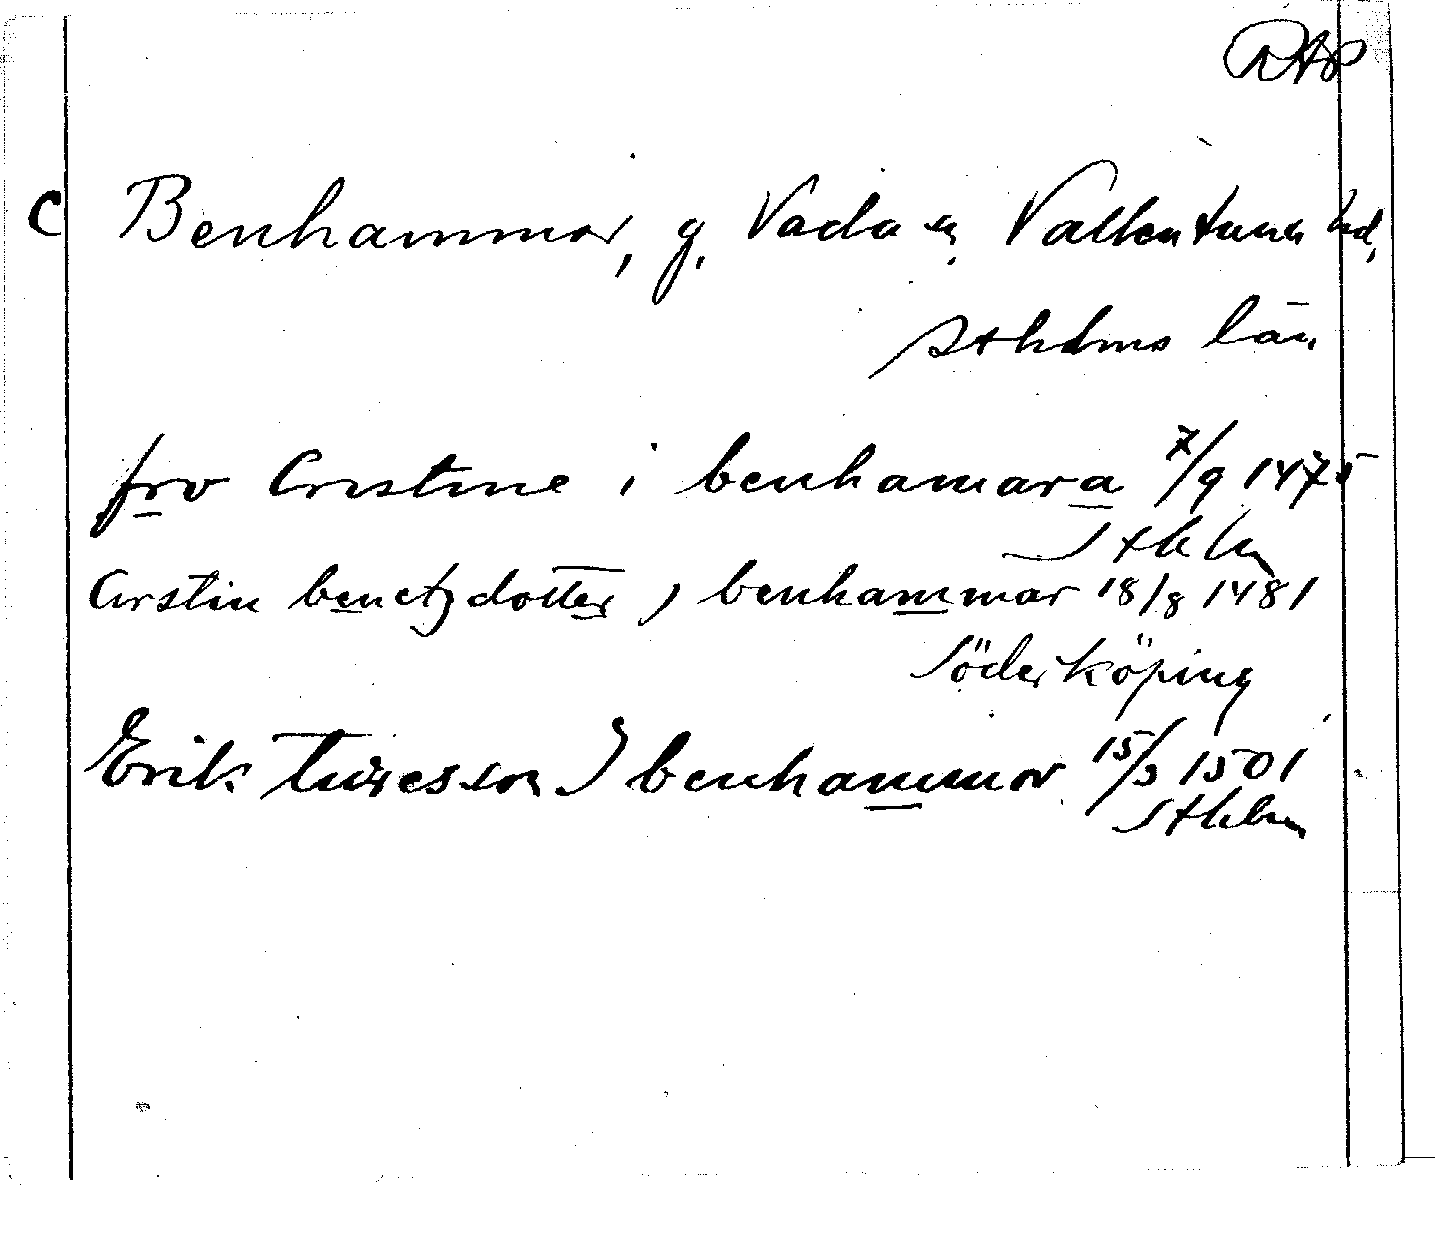 RAP
C Benhammar, g. Vada sn, Vallentuna hd,
Sthlms län
fro Cristine i benhamara 7/9 1475
Sthlm
Cirstin benctzdotter j benhammar 18/8 1481
Söderköping
Erik turesson J benhammar 15/3 1501
Sthlm